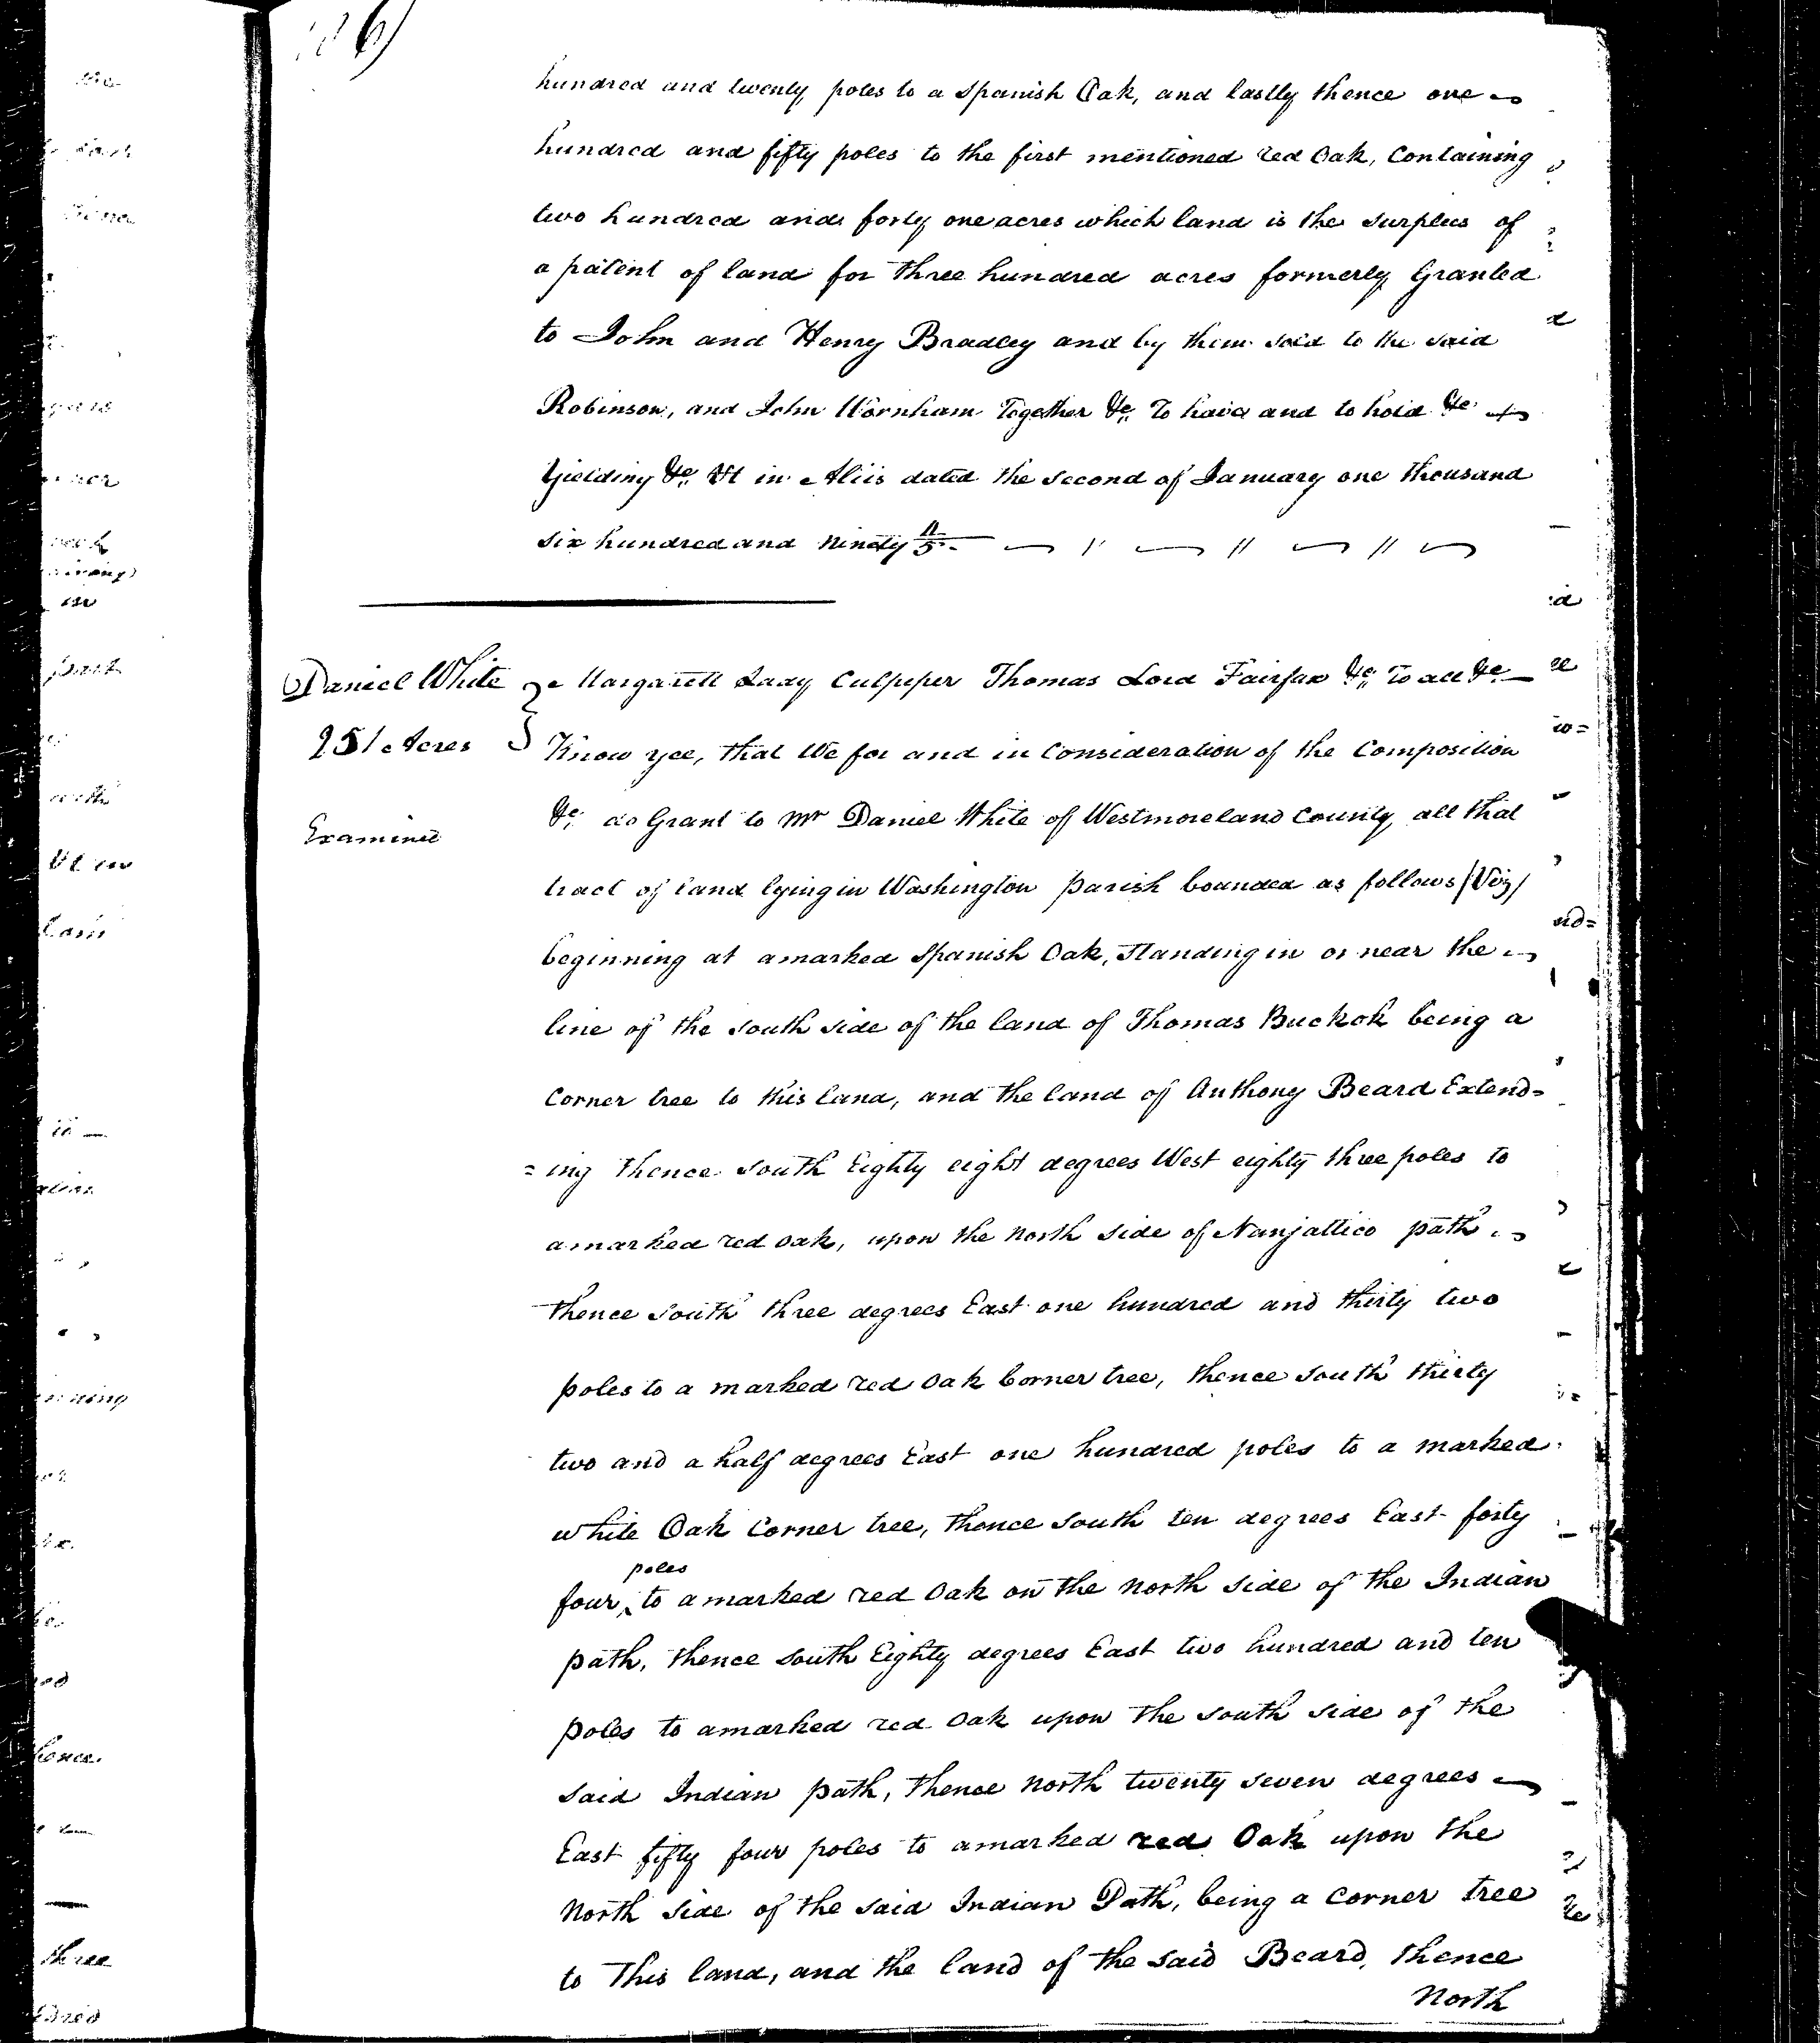 hundred and twenty poles to a Spanish Oak, and lastly thence one
hundred and fifty poles to the first mentioned red Oak, Containing
two hundred and forty one acres which land is the Surplus of
a patent of land for three hundred acres formerly Granted
to John and Henry Bradley and by them sold to the said
Robinson, and John Wornham Together &c. To have and to hold &c.
Yielding &c. Ut in Aliis dated the second of January one thousand
six hundred and ninety 4/5
Daniel White
951 Acres
Examined
Margarett Lady Culpeper Thomas Lord Fairfax &c. To all &c.
Know yee, that We for and in Consideration of the Composition
&c. do Grant to Mr Daniel White of Westmoreland County, all that
tract of land lying in Washington parish bounded as follows (Viz)
beginning at a marked Spanish Oak, Standing in or near the
line of the South side of the land of Thomas Buckok being a
Corner tree to this land, and the land of Anthony Beard Extend=
=ing Thence South Eighty eight degrees West eighty three poles to
a marked red oak, upon the North side of Nanjattico path
Thence South three degrees East one hundred and thirty two
poles to a marked red Oak Corner tree, thence South thirty
two and a half degrees East one hundred poles to a marked
white Oak Corner tree, thence South ten degrees East forty
four poles to a marked red Oak on the North side of the Indian
path, thence South Eighty degrees East two hundred and ten
poles to a marked red Oak upon the South side of the
said Indian path, thence North twenty seven degrees
East fifty four poles to a marked red Oak upon the
North side of the said Indian Path, being a Corner tree
to This land, and the land of the said Beard, thence
North